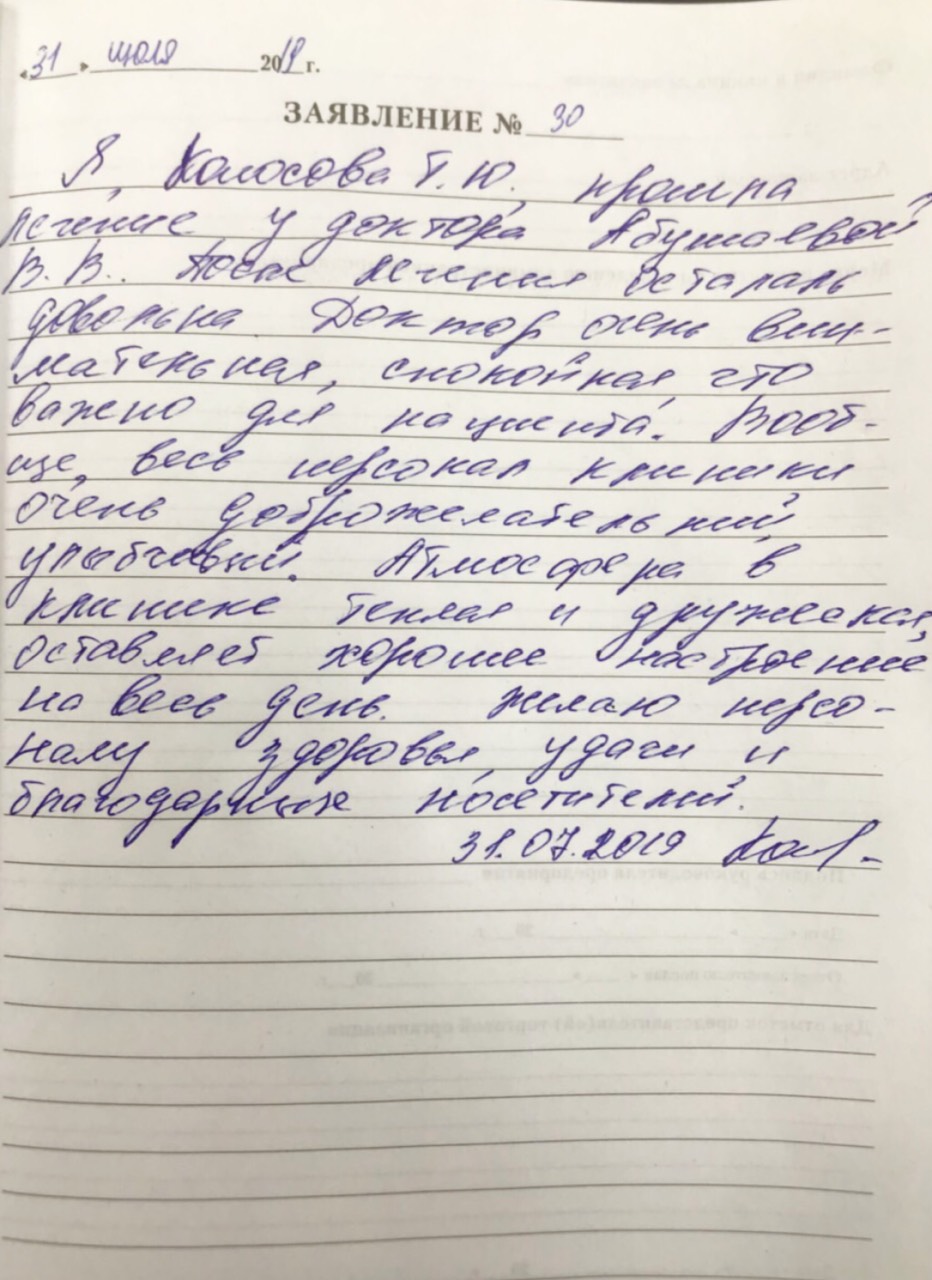 «31» июля 2019 г.
ЗАЯВЛЕНИЕ № 30
Я, Колосова Т.Ю., прошла
лечение у доктора Абушаевой
В.В. После лечения осталась
довольна. Доктор очень вни-
мательная, спокойная, что
важно для пациента. Вооб-
ще, весь персонал клиники
очень доброжелательный,
улыбчивый. Атмосфера в
клинике теплая и дружеская,
оставляет хорошее настроение
на весь день. Желаю персо-
налу здоровья, удачи и
благодарных посетителей.
31.07.2019